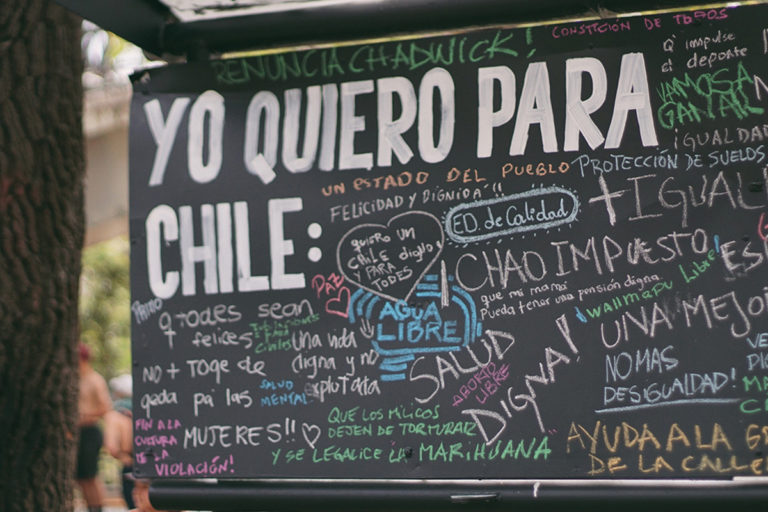 RENUNCIA CHADWICK!
CONSTICIÓN DE TODOS
YO QUIERO PARA
CHILE:
Q' impulse
el deporte
VAMOSA
GANAR
¡IGUALDAD
PROTECCIÓN DE SUELOS
UN ESTADO DEL PUEBLO
FELICIDAD Y DIGNIDA'!!
ED. de Calidad
+IGUAL
quiero un
CHILE digno
y PARA
TODES
CHAO IMPUESTO
que mi mamá
pueda tener una pensión digna
wallmapu Libre!
PAZ
AGUA
LIBRE
q todes sean
felices
una vida
digna y no
explotada
NO + TOQE de
qada pa' las
MUJERES!!
SALUD
MENTAL
SALUD
DIGNA!
ABORTO
LIBRE
UNA MEJO
NO MAS
DESIGUALDAD!
FIN A LA
CULTURA
DE LA
VIOLACIÓN!
QUE LOS MILICOS
DEJEN DE TORTURAR
Y SE LEGALICE LA MARIHUANA
AYUDA A LA
DE LA CALLE